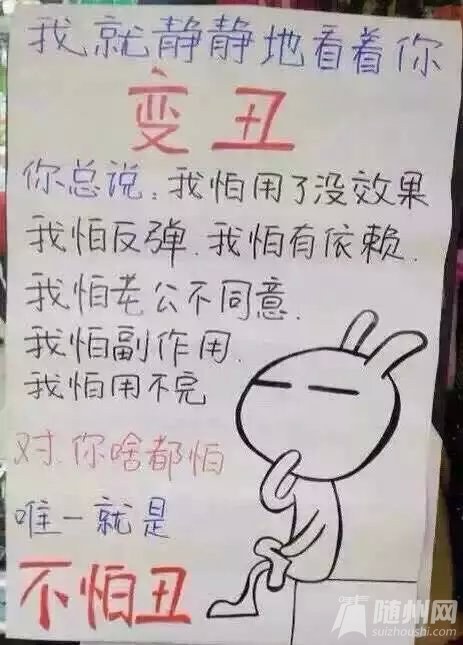 我就静静地看着你
变丑
你总说:我怕用了没效果
我怕反弹.我怕有依赖.
我怕老公不同意.
我怕副作用.
我怕用不完
对.你啥都怕
唯一就是
不怕丑
随州网
suizhoushi.com